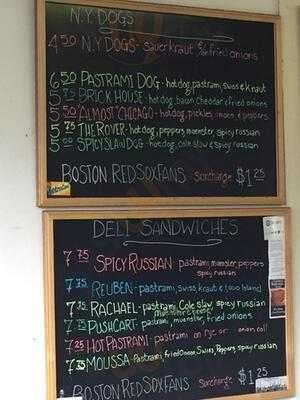 N.Y. DOGS
4 50 N.Y. DOGS - Sauerkraut &/or fried onions
6 50 PASTRAMI DOG - hot dog, pastrami, swiss & kraut
5 75 BRICK HOUSE - hot dog, bacon, cheddar & fried onions
5 50 "ALMOST" CHICAGO - hot dog, pickles, onions & peppers
5 75 THE ROVER - hot dog, peppers, muenster, spicy russian
5 50 SPICY SLAW DOG - hot dog, cole slaw & spicy russian
BOSTON RED SOX FANS Surcharge $1 25
DELI SANDWICHES
7 75 SPICY RUSSIAN pastrami, muenster, peppers
spicy russian
7 75 REUBEN - pastrami, swiss, kraut & 1000 Island
7 75 RACHAEL - pastrami, Cole slaw, spicy russian
7 75 PUSHCART - pastrami, muenster, fried onions
7 25 HOT PASTRAMI - pastrami on rye or onion roll
7 75 MOUSSA - Pastrami, fried Onion, Swiss, Peppers, spicy russian
BOSTON RED SOX FANS Surcharge $1 25